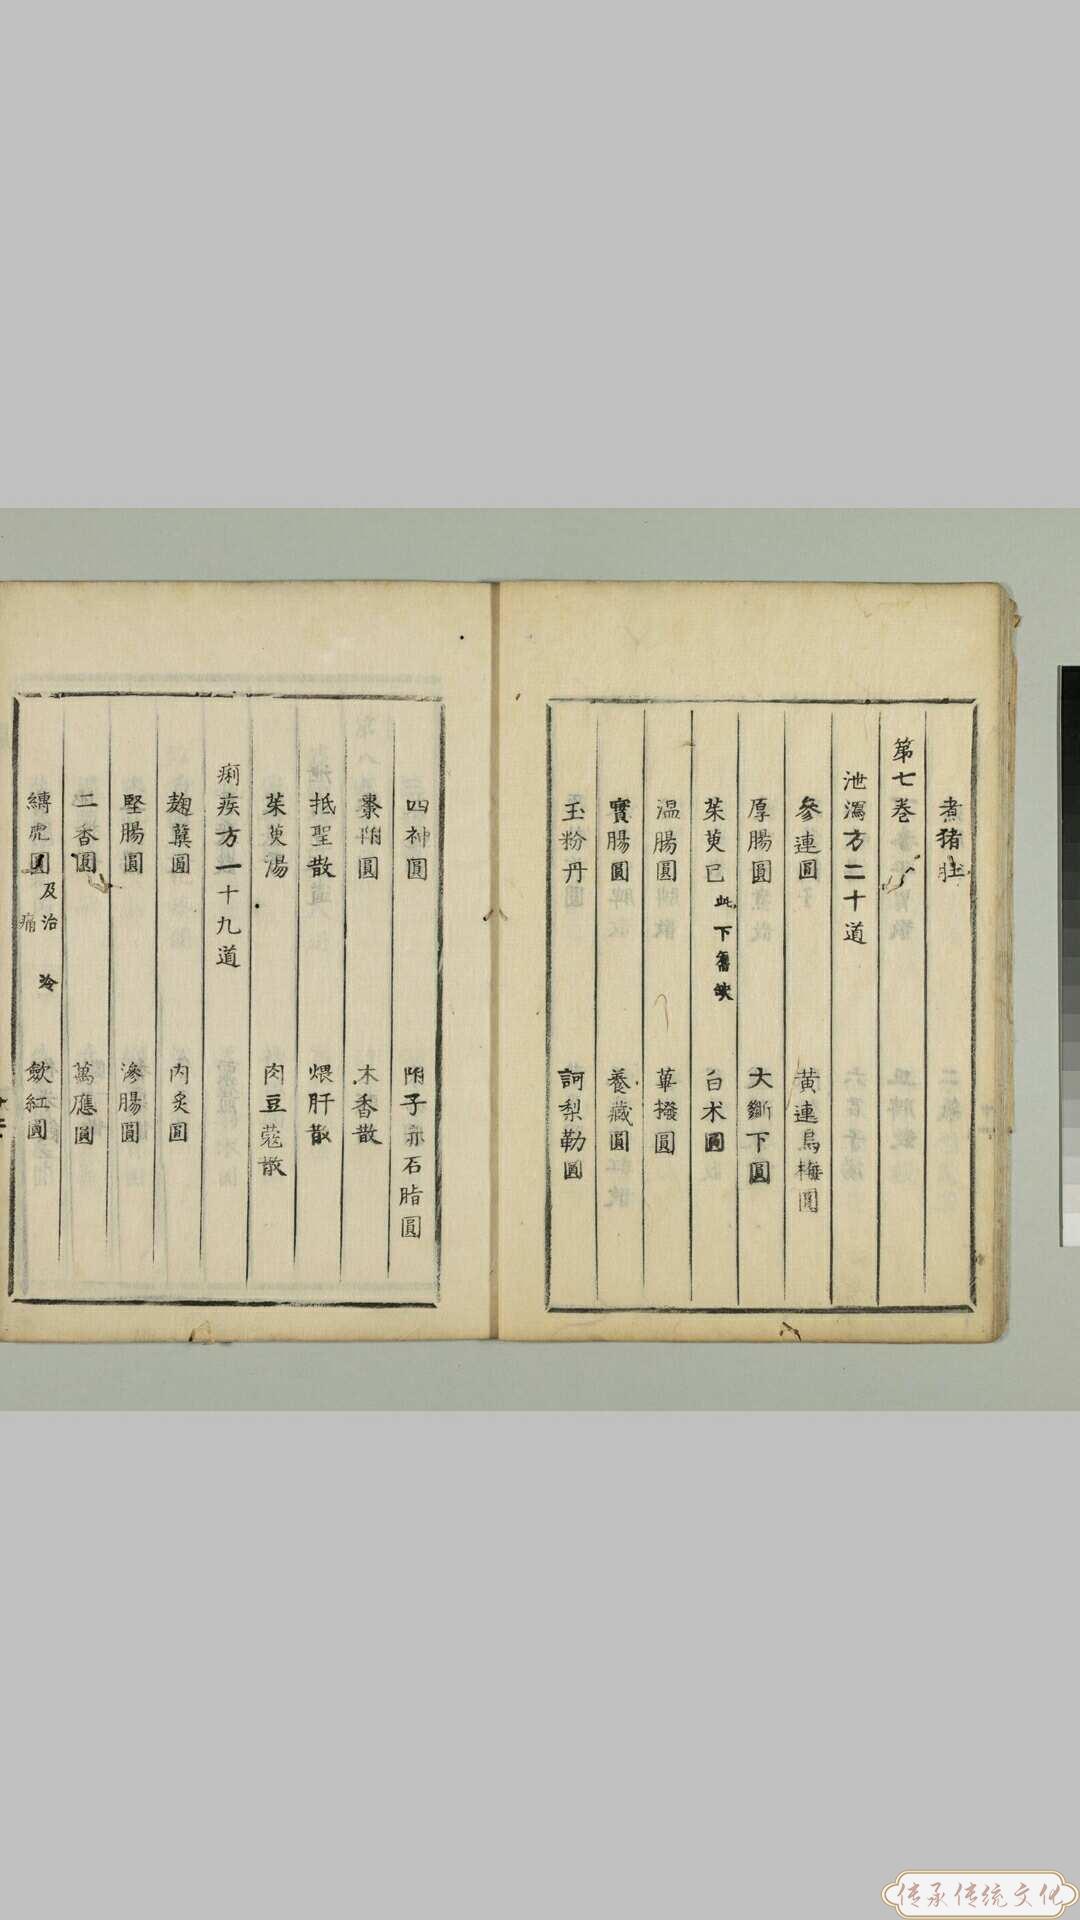 煮猪肚
第七卷
泄瀉方二十道
參連圓 黃連烏梅圓
厚腸圓 大斷下圓
茱萸已此下舊缺 白术圓
温腸圓 蓽撥圓
實腸圓 養藏圓
玉粉丹 訶梨勒圓
四神圓 附子赤石脂圓
棗附圓 木香散
抵聖散 煨肝散
茱萸湯 肉豆蔻散
痢疾方一十九道
麹蘖圓 肉炙圓
堅腸圓 滲腸圓
二香圓 萬應圓
縛虎圓及治冷痛 斂紅圓
传承传统文化